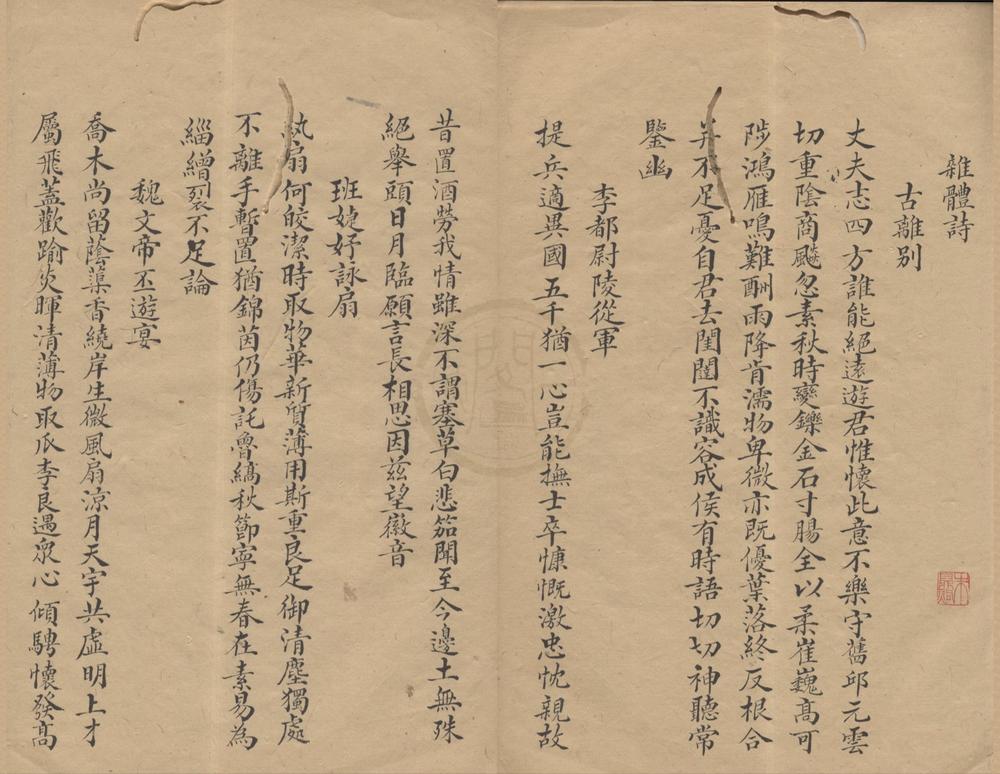 雜體詩
古離別
丈夫志四方誰能絕遠遊君惟懷此意不樂守舊邱元雲
切重陰商飈忽素秋時變鑠金石寸腸全以柔崔巍高可
陟鴻雁鳴難酬雨降肯濡物卑微亦既優葉落終反根合
并不足憂自君去閨闥不識容成侯有時語切切神聽常
鑒幽
李都尉陵從軍
提兵適異國五千猶一心豈能撫士卒慷慨激忠忱親故
昔置酒勞我情雖深不謂塞草白悲笳聞至今邊土無殊
絕舉頭日月臨願言長相思因茲望徽音
班婕妤詠扇
紈扇何皎潔時取物華新質薄用斯重良足御清塵獨處
不離手暫置猶錦茵仍傷託魯縞秋節寧無春在素易為
緇繒裂不足論
魏文帝丕遊宴
喬木尚留蔭蕖香繞岸生微風扇涼月天宇共虛明上才
屬飛蓋歡踰炎暉清薄物取瓜李良遇眾心傾騁懷發高